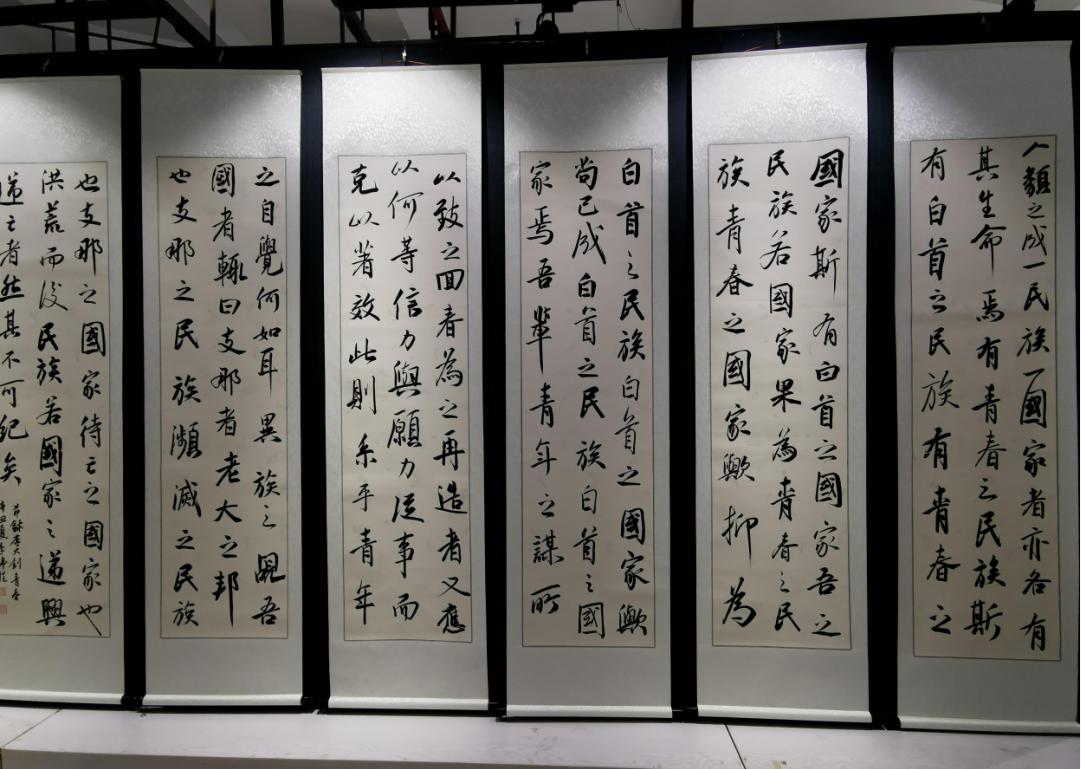 人類之成一民族一國家者亦各有
其生命焉有青春之民族斯
有白首之民族有青春之
國家斯有白首之國家吾之
民族若國家果為青春之民
族青春之國家歟抑為
白首之民族白首之國家歟
苟已成白首之民族白首之國
家焉吾輩青年之謀所
以致之回春為之再造者又應
以何等信力與願力從事而
克以著效此則系乎青年
之自覺何如耳異族之覘吾
國者輒曰支那者老大之邦
也支那之民族瀕滅之民族
也支那之國家待亡之國家也
洪荒而後民族若國家之遞興
遞亡者然其不可紀矣
節錄李大釗青春
辛丑夏